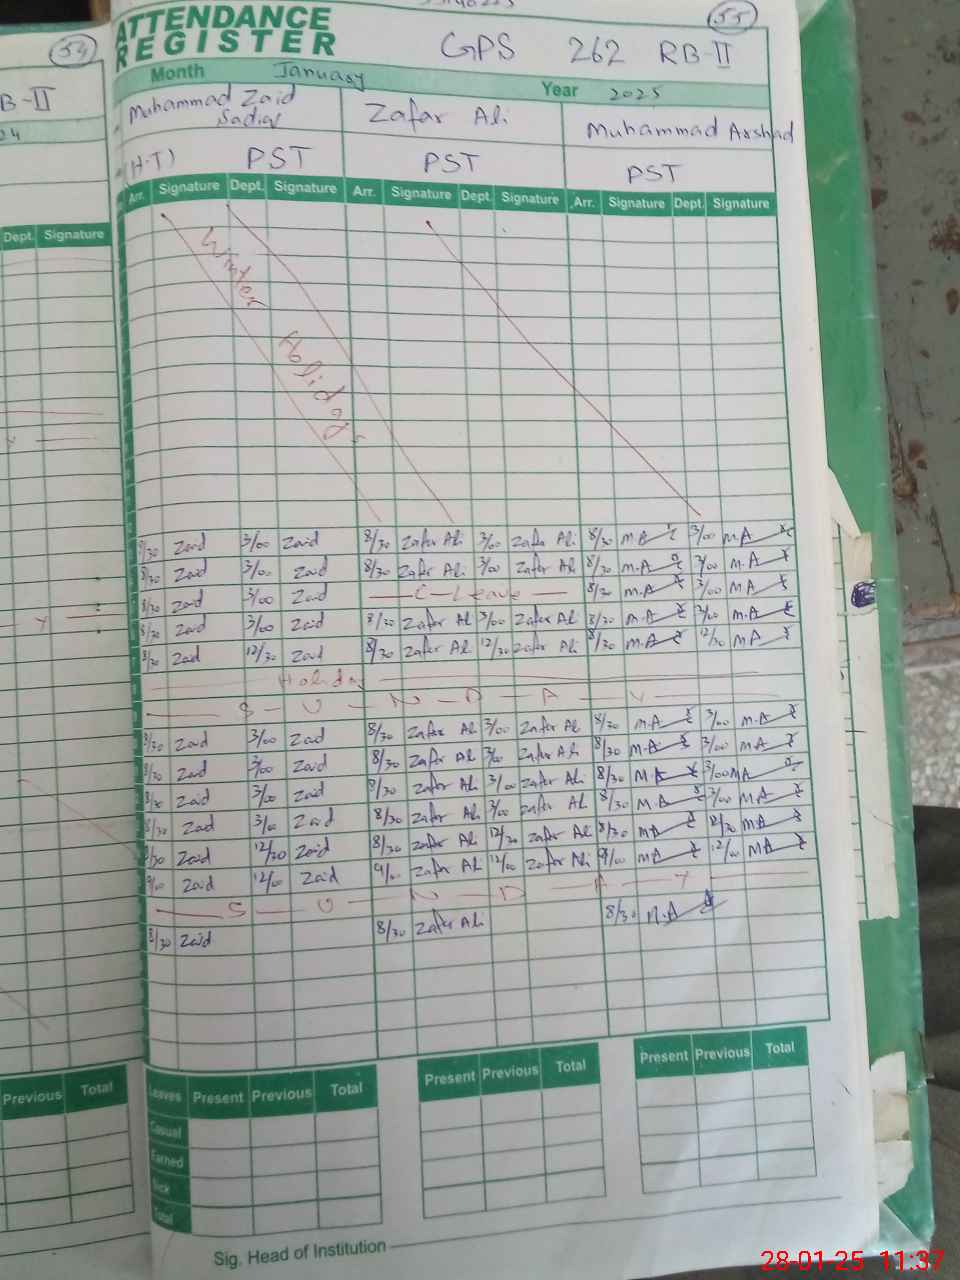 55
54
ATTENDANCE
REGISTER
GPS 262 RB-II
B-II
Month January Year 2025
24
Muhammad Zaid Zafar Ali Muhammad Arshad
(H.T) PST PST PST
Arr. Signature Dept. Signature Arr. Signature Dept. Signature Arr. Signature Dept. Signature
Dept. Signature
Winter
Holidays
8/30 Zaid 3/00 Zaid 8/30 Zafar Ali 3/00 Zafar Ali 8/30 M.A 3/00 M.A
8/30 Zaid 3/00 Zaid 8/30 Zafar Ali 3/00 Zafar Ali 8/30 M.A 3/00 M.A
8/30 Zaid 3/00 Zaid C-Leave 8/30 M.A 3/00 MA
8/30 Zaid 3/00 Zaid 8/30 Zafar Ali 3/00 Zafar Ali 8/30 M.A 3/00 M.A
8/30 Zaid 12/30 Zaid 8/30 Zafar Ali 12/30 Zafar Ali 8/30 M.A 12/30 MA
Holiday
S - U - N - D - A - Y
8/30 Zaid 3/00 Zaid 8/30 Zafar Ali 3/00 Zafar Ali 8/30 M.A 3/00 M.A
8/30 Zaid 3/00 Zaid 8/30 Zafar Ali 3/00 Zafar Ali 8/30 M.A 3/00 MA
8/30 Zaid 3/00 Zaid 8/30 Zafar Ali 3/00 Zafar Ali 8/30 M.A 3/00 MA
8/30 Zaid 3/00 Zaid 8/30 Zafar Ali 3/00 Zafar Ali 8/30 M.A 3/00 MA
8/30 Zaid 12/30 Zaid 8/30 Zafar Ali 12/30 Zafar Ali 8/30 MA 12/30 MA
9/00 Zaid 12/00 Zaid 9/00 Zafar Ali 12/00 Zafar Ali 9/00 MA 12/00 MA
S U N D A Y
8/30 Zaid 8/30 Zafar Ali 8/30 M.A
Leaves Present Previous Total Present Previous Total Present Previous Total
Previous Total
Casual
Earned
Sick
Total
Sig. Head of Institution
28-01-25 11:37